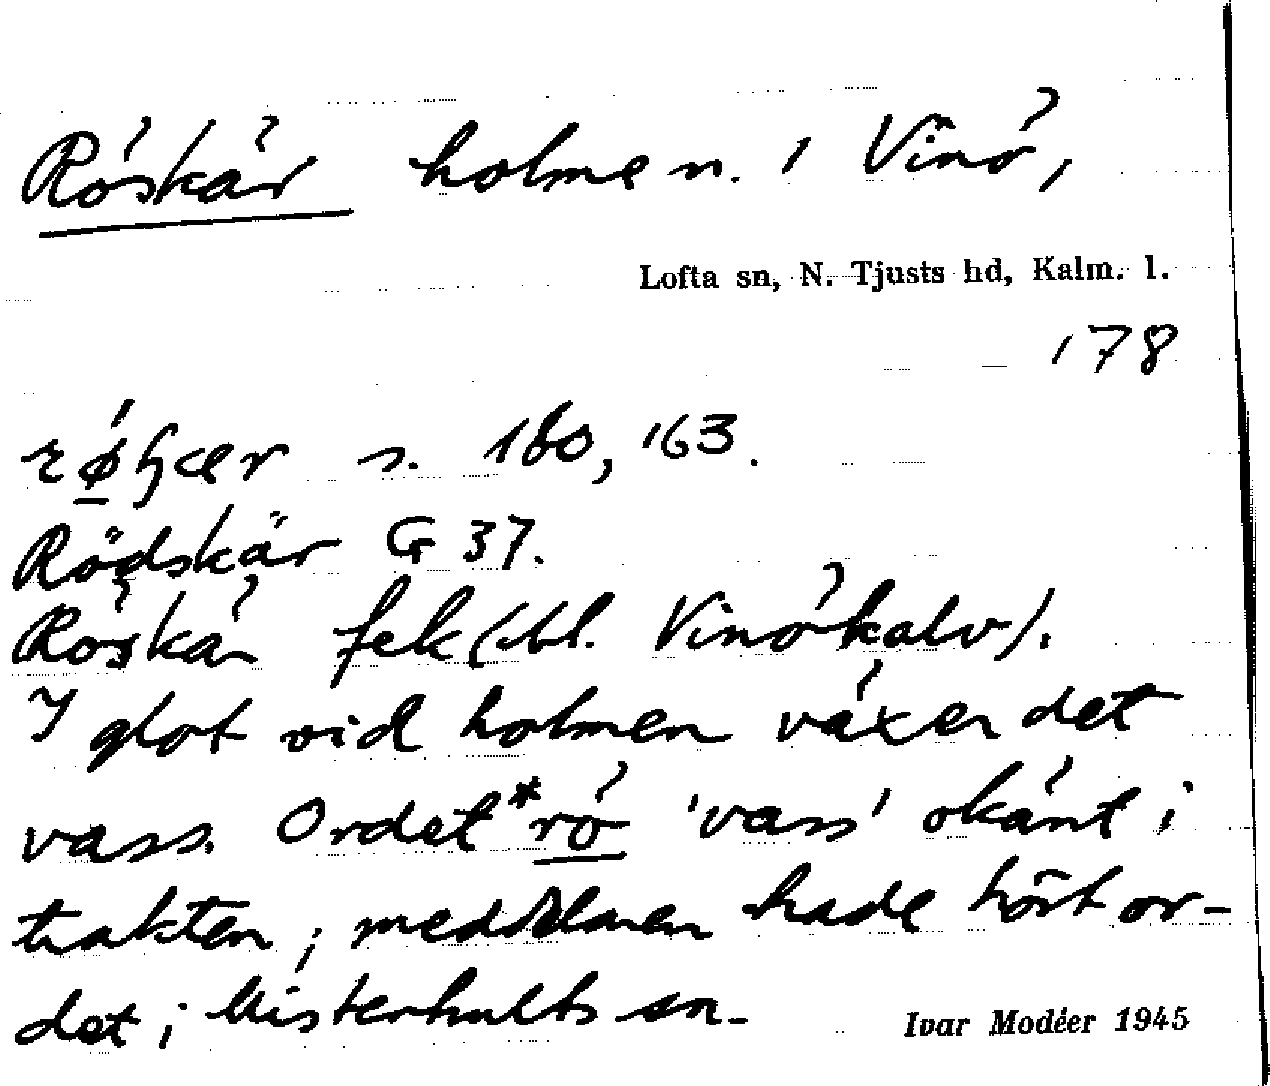 Röskär holme n. i Vinö,
Lofta sn, N. Tjusts hd, Kalm. l.
178
s. 160, 163.
Rödskär G 37.
Röskär fek (bl. Vinökalv).
I glot vid holmen växer det
vass. Ordet *rö 'vass' okänt i
trakten; meddelaren hade hört or-
det i Misterhults sn.
Ivar Modéer 1945